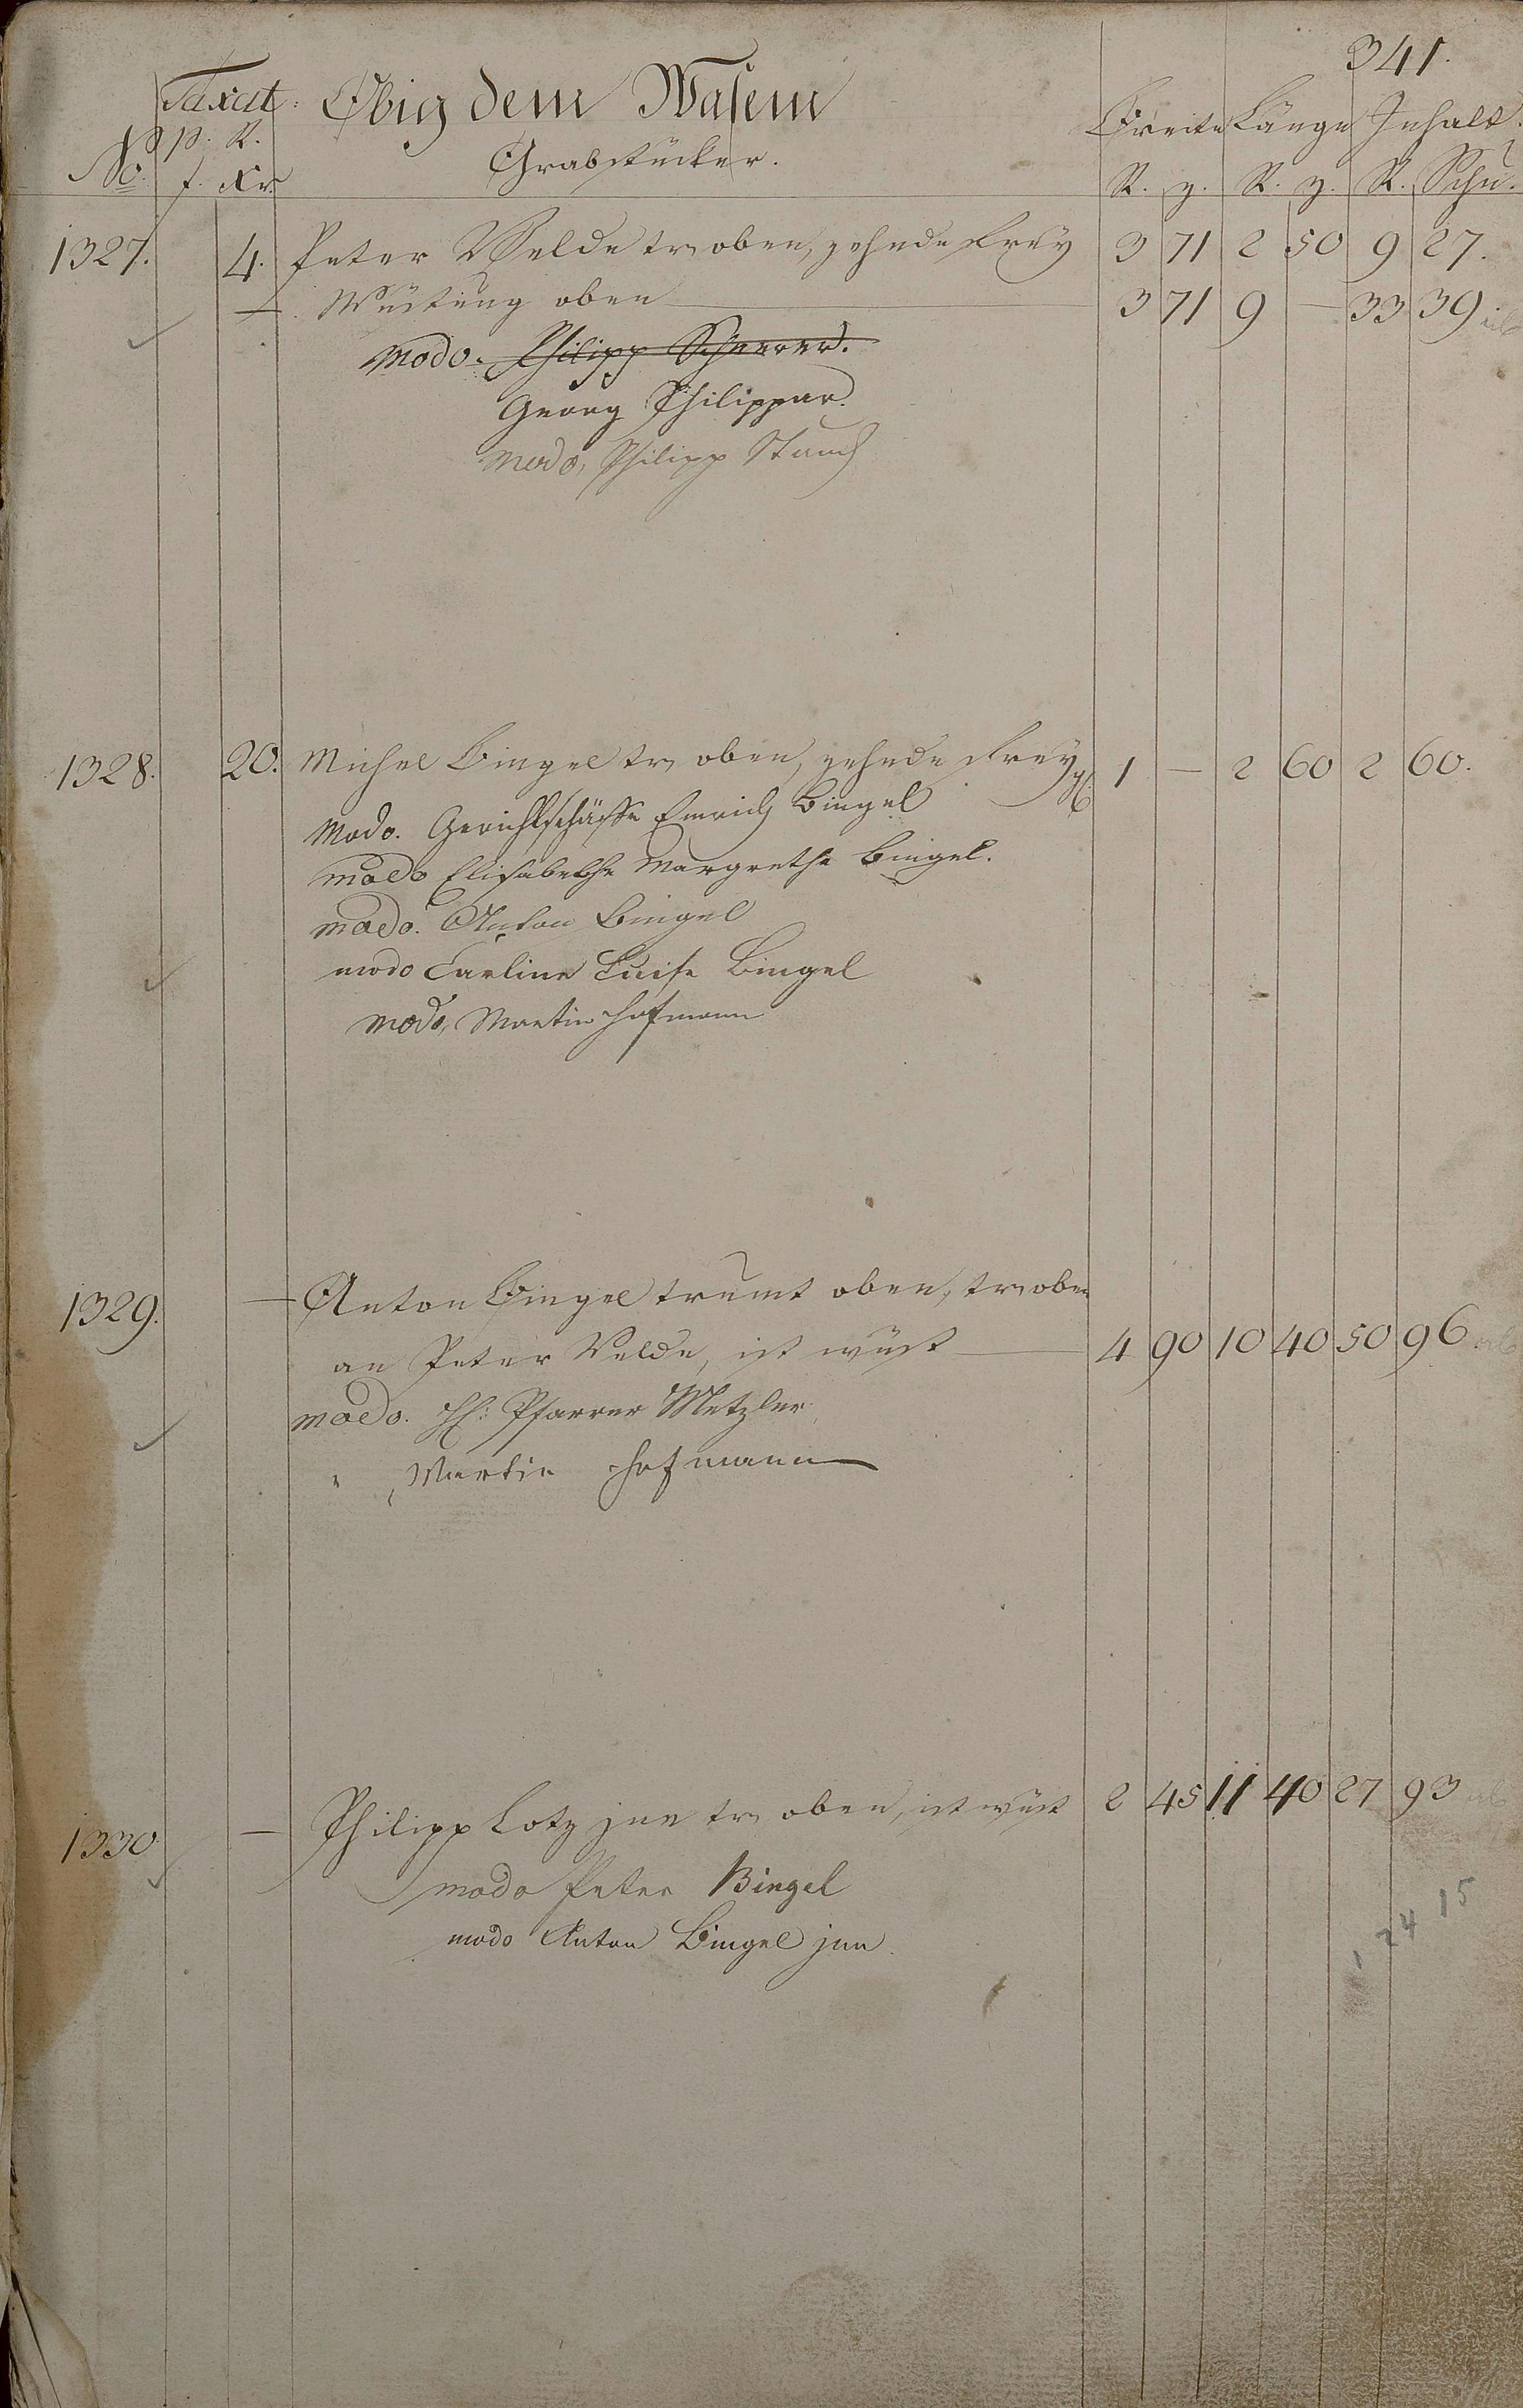 341.
Taxat: Obig dem Wasem
p. R. Breite Länge Inhalt.
No. f. Xr. Grabstücker. R. z. R. z. R. Schu.
1327. 4. Peter Velde tr oben, zehnde frey 3 71 2 50 9 27.
— Wüstung oben — 3 71 9 — 33 39
modo. Philipp Scherer.
Georg Philippar.
modo, Philipp Stauch
1328. 20. Michel Bingel tr oben, zehnde frey 1 — 2 60 2 60.
modo. Gerichtschäffe Emrich Bingel
modo Elisabetha Margretha Bingel.
modo. Anton Bingel
modo Carline Luise Bingel
modo, Martin Hofmann
1329. — Anton Bingel trumt oben, tr oben
an Peter Velde, ist wüst — 4 90 10 40 50 96
modo. H: Pfarrer Metzler
" Martin Hofmann
1330 — Philipp Lotz jun tr oben, ist wüst 2 45 11 40 27 93
modo Peter Bingel
modo Anton Bingel jun.
1 24 15